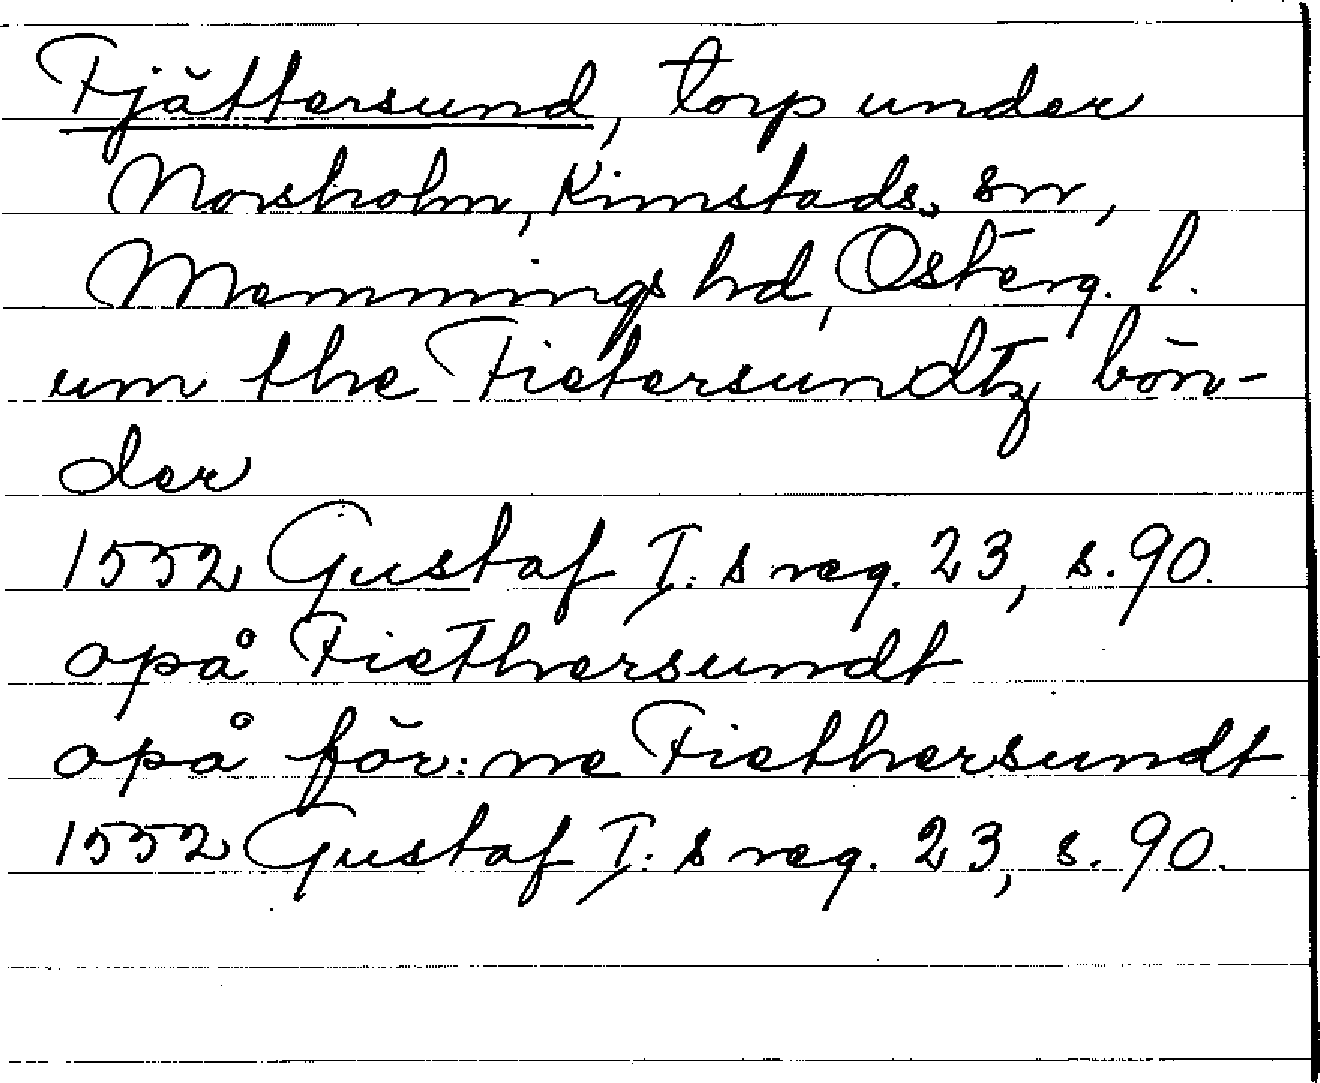 Fjättersund, torp under
Norsholm, Kimstads sn,
Memmings hd, Österg. l.
um the Fietersundtz bön-
der
1552 Gustaf I:s reg. 23, s. 90.
opå Fiethersundt
opå för:ne Fiethersundt
1552 Gustaf I:s reg. 23, s. 90.